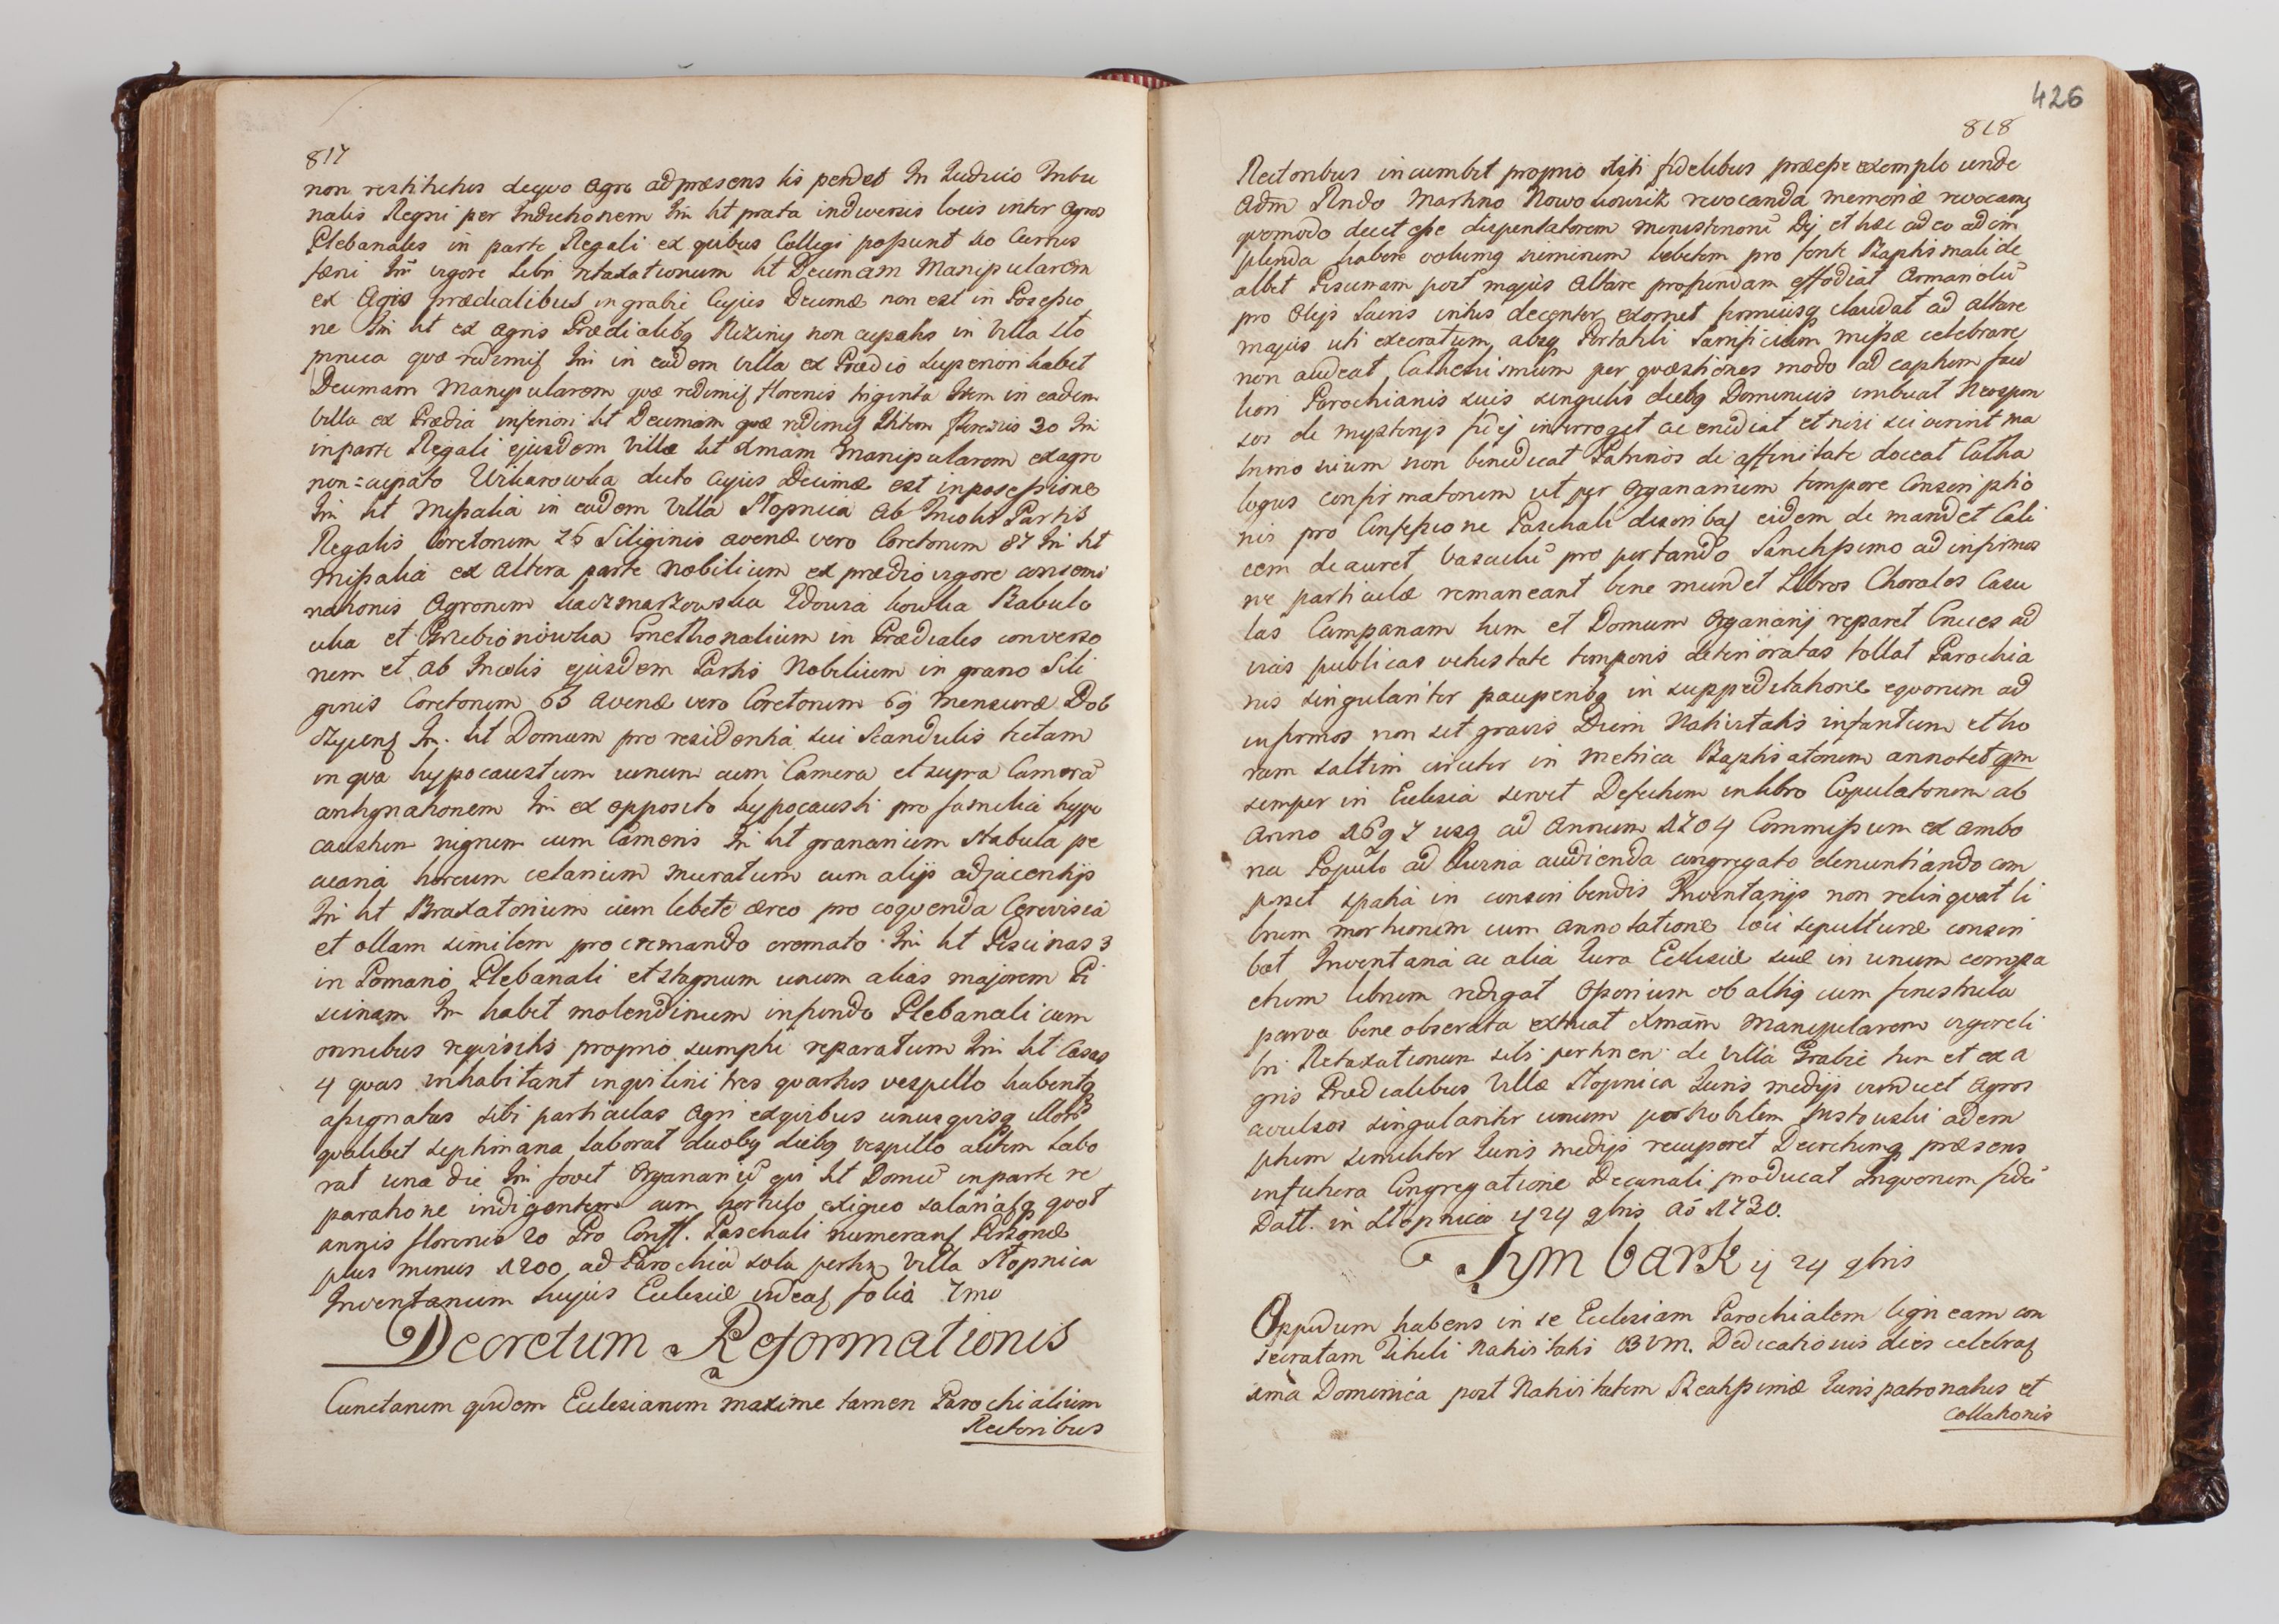 817
non restitutus dequo Agro ad præsens lis pendet In Iudicio Tribu
nalis Regni per Inductionem Itē ht prata indiversis locis inter Agros
Plebanales in parte Regali ex quibus Colligi possunt Currus
fæni Itē vigore Libri retaxationum ht Decimam Manipularem
ex Agris prædialibus in grabie Cujus Decimæ non est in Possessio
ne Itē ht ex agris Prædialibg non cupatis in Villa Sto
pnica quæ redimit Itē in eadem villa ex Prædio superiori habet
Decimam Manipularem quæ redimit florenis triginta Item in eadem
Villa ex Prædio inferiori ht Decimam quæ redimit florenis 30 Itē
inparte Regali ejusdem Villæ ht Xmam Manipularem exagro
non=cupato dicto Cujus Decimæ est inpossessione
Itē ht Missalia in eadem Villa Stopnica Ab Incolis Partis
Regalis Coretorum 75 Siliginis avenæ vero Coretorum 87 Itē ht
Missalia ex Altera parte Nobilium ex prædio vigore
nationis Agrorum
et Cmethonalium in Prædiales converso
nem et ab Incolis ejusdem Partis Nobilium in grano Sili
ginis Coretorum 63 avenæ vero Coretorum 69 Mensuræ Dob
Itē. ht Domum pro residentia sui Scandulis tectam
in qva hypocaustum unum cum Camera et supra Camerā
contignationem Itē ex opposito hypocausti pro familia hypo
caustum nigrum cum Cameris Itē ht granarium Stabula pe
coraria horreum celarium Muratum cum alijs adjacentijs
Itē ht Braxatorium cum lebete æreo pro coqvenda Cerevisia
et ollam similem pro cremando cremato Itē ht Piscinas 3
in Pomario Plebanali et stagnum unum alias majorem Pi
scinam Itē habet molendinum infundo Plebanali cum
omnibus reqvisitis proprio sumptu reparatum Itē ht Casas
4 qvas inhabitant inqvilini tres qvartus vespillo habentg
assignatas sibi particulas Agri exqvibus unusqvisq illorū
qvalibet septimana laborat duobg diebg vespillo autem labo
rat una die Itē fovet Organariū qvi ht Domū inparte re
paratione indigentem cum hortulo exiguo qvot
annis florenis 20 Pro Conff. Paschali numerant Personæ
plus minus 1200 ad Parochiā sola pertin Villa Stopnica
Inventarium hujus Ecclesiæ videat folio 7mo
Decretum Reformationis
Cunctarum qvidem Ecclesiarum maxime tamen Parochialium
Rectoribus
426
818
Rectoribus incumbit proprio Xsti fidelibus præesse exemplo unde
Adm Rndo Martino revocanda memoriæ revocamg
qvomodo decet esse dispensatorem ministeriorū Dij et hæc ad eo adim
plenda habere volumg nimirum lebetem pro fonte Baptismali de
albet Piscinam post majus Altare profundam effodiat Armariolū
pro Olijs Sacris intus decenter exornet firmiusq claudat ad altare
majus uti execratum, absq Portatili Sacrificium missæ celebrare
non audeat, Cathecismum per qvæstiones modo ad captum
Parochianis suis singulis diebg Dominicis imbuat
de mysterijs fidej interroget ac erudiat et nisi sciverint ma
trimonium non benedicat Patrinos de affinitate doceat Catha
logus confirmatorum ut per Organarium tempore Conscriptio
nis pro Confessione Paschali describat eidem de mandet Cali
cem deauret Vasculū pro portando Sanctissimo ad infirmos
ne particulæ remaneant bene mundet Libros Chorales Casu
las Campanam tum et Domum Organarij reparet Cruces ad
vias publicas vetustate temporis deterioratas tollat Parochia
nis singulariter pauperibg in suppeditatione eqvorum ad
infirmos non sit gravis Diem Nativitatis infantum et ho
ram saltim circiter in Metrica Baptisatorum annotet qm
semper in Ecclesia servet Defectum in libro Copulatorum ab
Anno 1697 usq ad Annum 1704 Commissum ex ambo
na Populo ad Divina audienda congregato denuntiando com
spatia in conscribendis Inventarijs non relinqvat li
brum mortuorum cum annotatione loci sepulturæ conscri
bat Inventaria ac alia Iura Ecclesiæ suæ in unum compa
ctum librum redigat cum fenestrula
parva bene obserata extruat Xmam Manipularem vigore li
bri Retaxationum sibi pertinen: de Villa Grabie tum et ex a
gris Prædialibus Villæ Stopnica Iuris medijs vindicet Agros
avulsos singulariter unum per Nobilem adem
ptum similiter Iuris medijs recuperet præsens
infutura Congregatione Decanali producat Inqvorum fidē
Datt. in Stopnica 24 9bris Aō 1730.
Tymbark ij 24 9bris
Oppidum habens in se Ecclesiam Parochialem ligneam con
secratam Tituli Nativitatis BVM. Dedicationis dies celebrat
Dominica post Nativitatem Beatissimæ Iuris patronatus et
Collationis